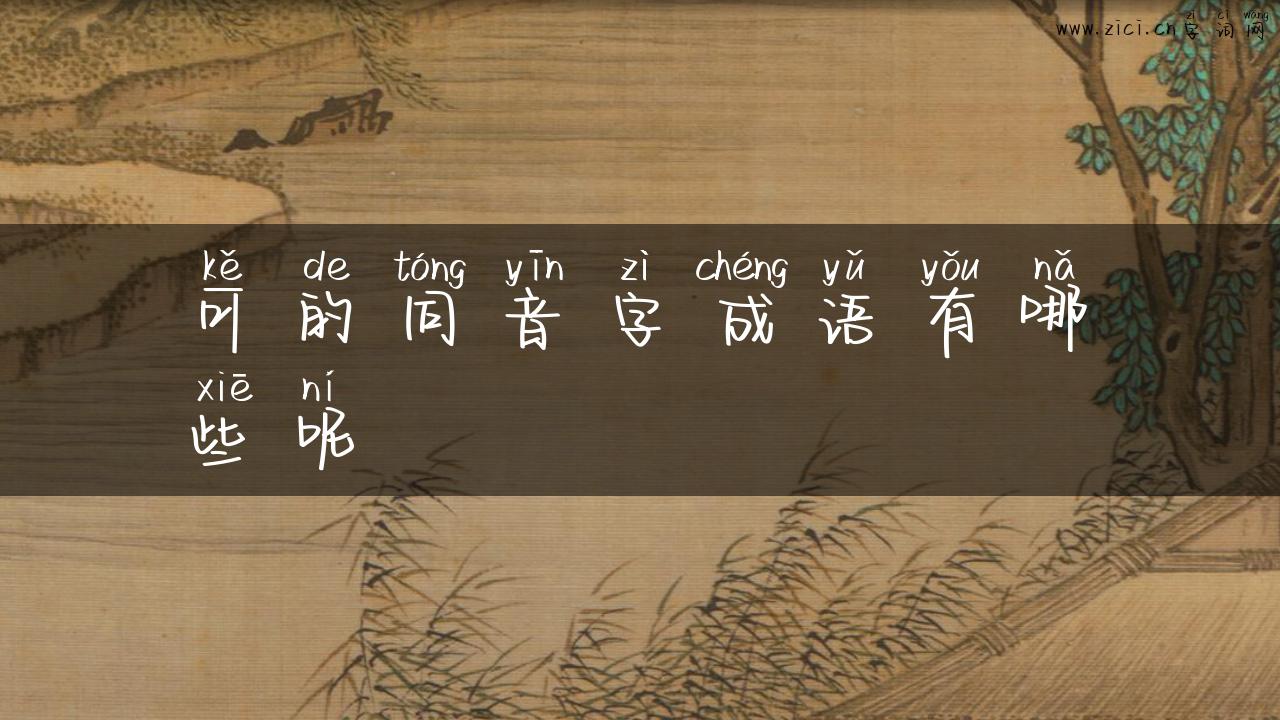 zì cí wǎng
www.zici.cn字词网
kě de tóng yīn zì chéng yǔ yǒu nǎ
可的同音字成语有哪
xiē ní
些呢